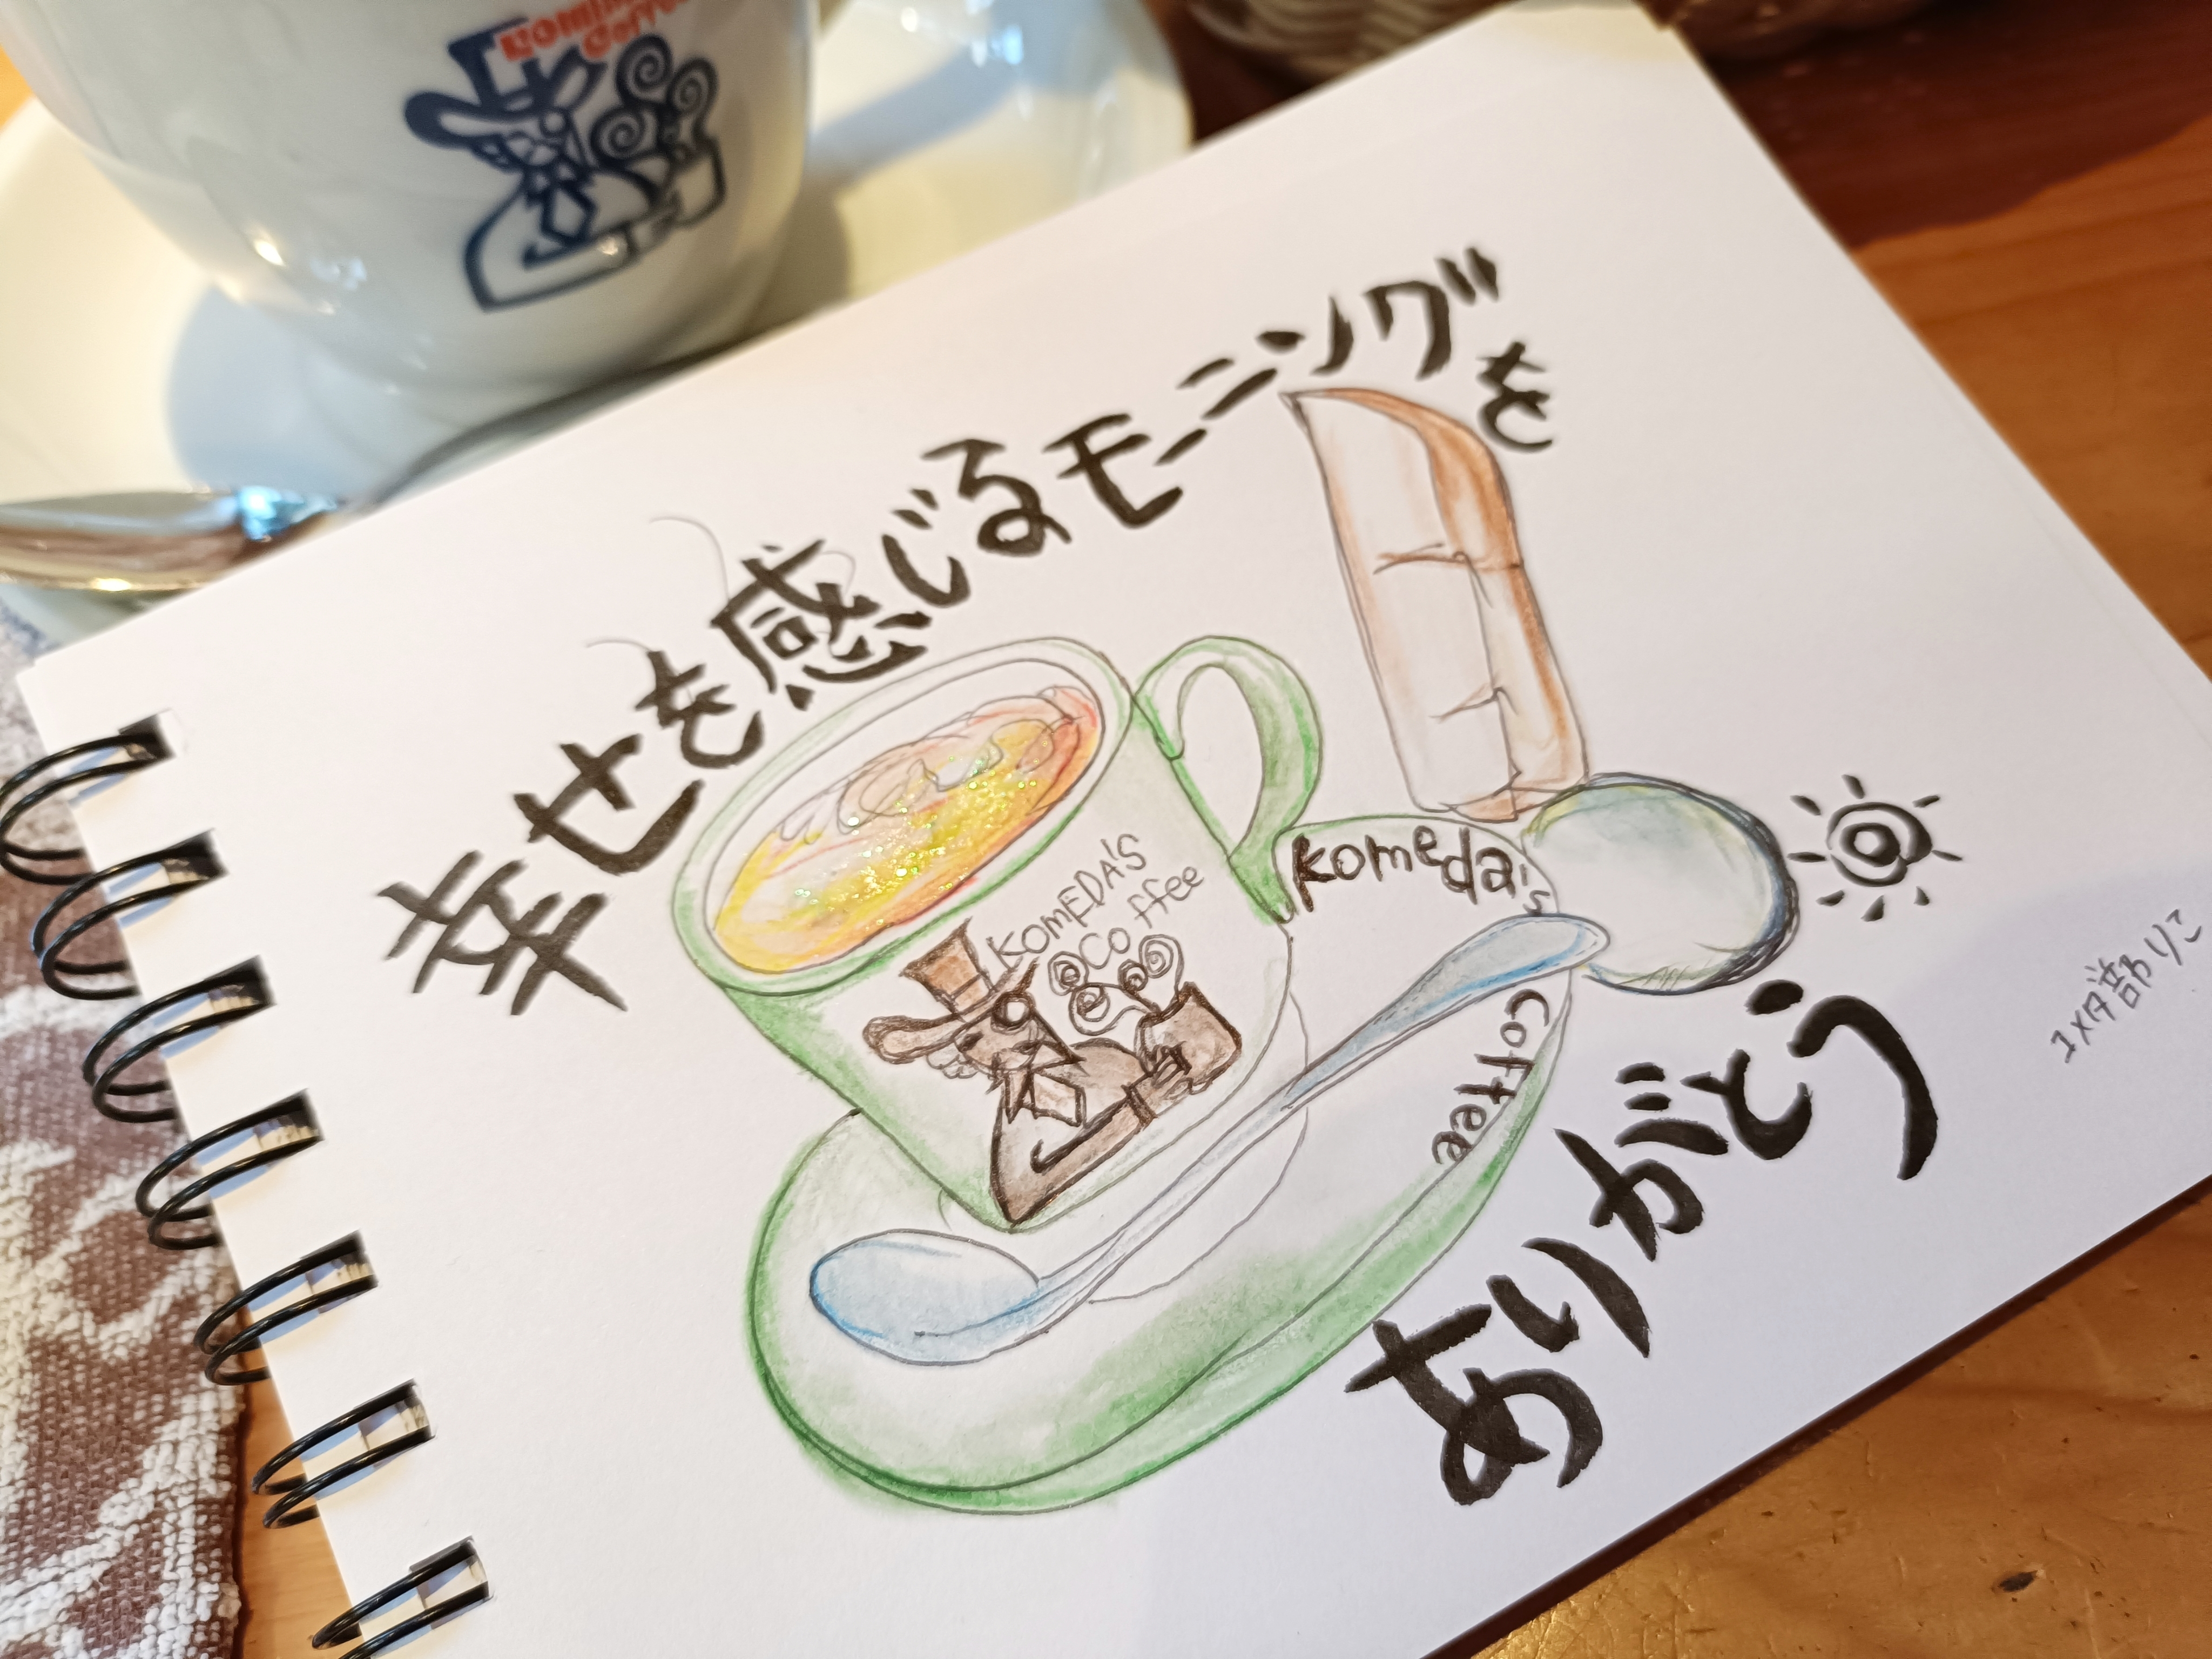 KOMEDA'S
Coffee
幸せを感じるモーニングを
KOMEDA'S
Coffee
komeda's
coffee
ありがとう